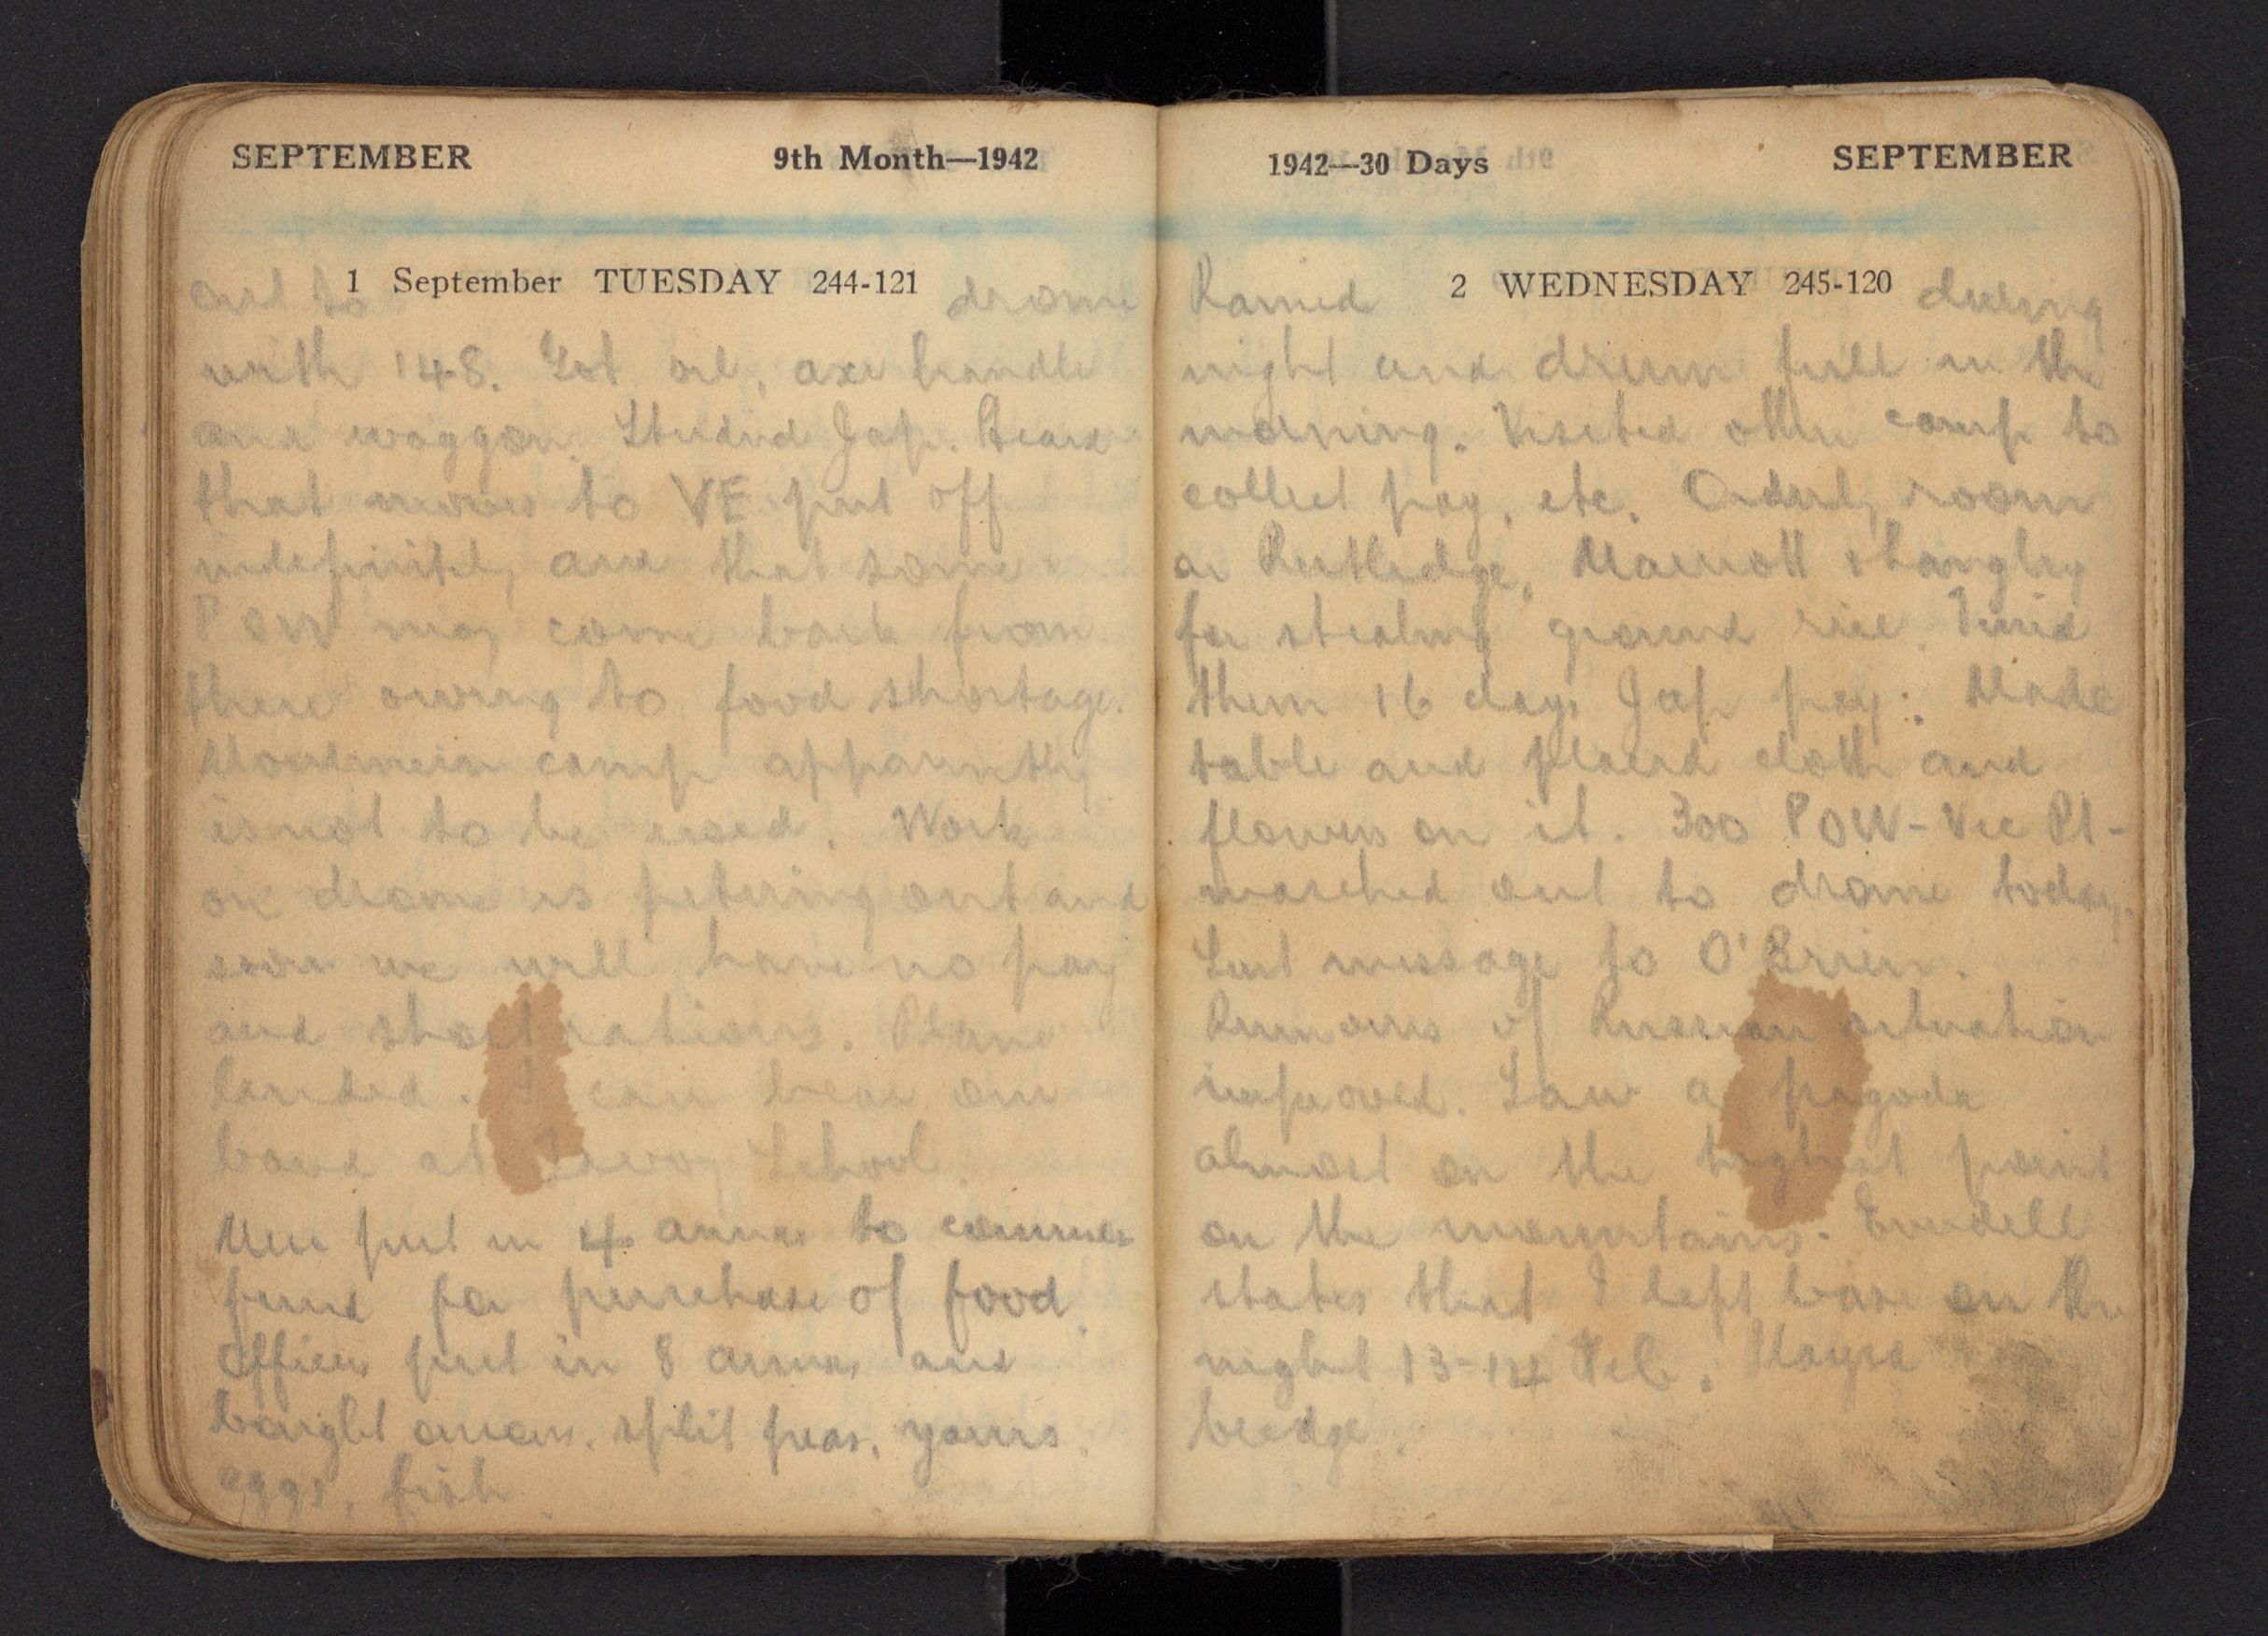 SEPTEMBER 9th Month—1942
1 September TUESDAY 244-121
Out to drome
with 148. Got oil, axe handle
and waggon. Studied Jap. Heard
that moves to VE put off
indefinitely and that some
POW may come back from
there owing to food shortage.
Moulmein camp apparently
is not to be used. Work
on drome is petering out and
soon we will have no pay
and short rations. Plane
landed. I can hear our
band at Tavoy School.
Men put in 4 annas to common
fund for purchase of food
Officers put in 8 annas and
bought onions, split peas, yams
eggs, fish
1942—30 Days SEPTEMBER
2 WEDNESDAY 245-120
Rained during
night and drum full in the
morning. Visited other camp to
collect pay, etc. Orderly room
on Rutledge, Marriott & Langley
for stealing ground rice. Fined
them 16 days Jap pay. Made
table and placed cloth and
flowers on it. 300 POW - Vic Pt -
marched out to drome today.
Sent message to O'Brien.
Rumours of Russian situation
improved. Saw a pagoda
almost on the highest point
on the mountains.
states that I left base on the
night 13-14 Feb.
bridge.